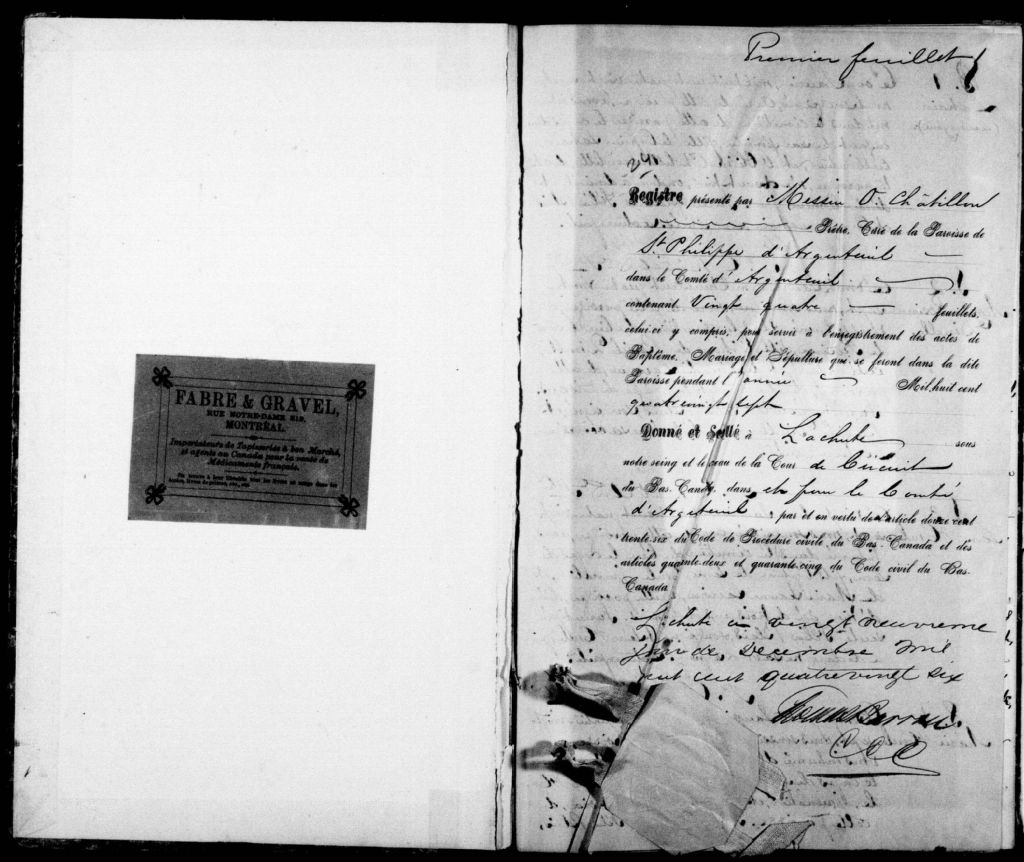 FABRE & GRAVEL,
RUE NOTRE-DAME 219,
MONTRÉAL
Importateurs de Tapisseries à bon Marché,
et agents au Canada pour la vente de
Médicaments français.
Premier feuillet
24
Registre présenté par Messire O. Châtillon
Prêtre, Curé de la Paroisse de
St. Philippe d'Argenteuil
dans le Comté d'Argenteuil
contenant Vingt quatre feuillets,
celui-ci y compris, pour servir à l'enregistrement des actes de
Baptême, Mariage et Sépulture qui se feront dans la dite
Paroisse pendant l'année Mil huit cent
quatrevingt sept
Donné et Scellé à Lachute sous
notre seing et le sceau de la Cour de Circuit
du Bas-Canada, dans et pour le Comté
d'Argenteuil, par et en vertu de l'article douze cent
trente-six du Code de Procédure civile du Bas-Canada et des
articles quarante-deux et quarante-cinq du Code civil du Bas-
Canada
Lachute ce vingt neuvieme
jour de Decembre mil
huit cent quatrevingt six
Thomas Barron
C.C.C.